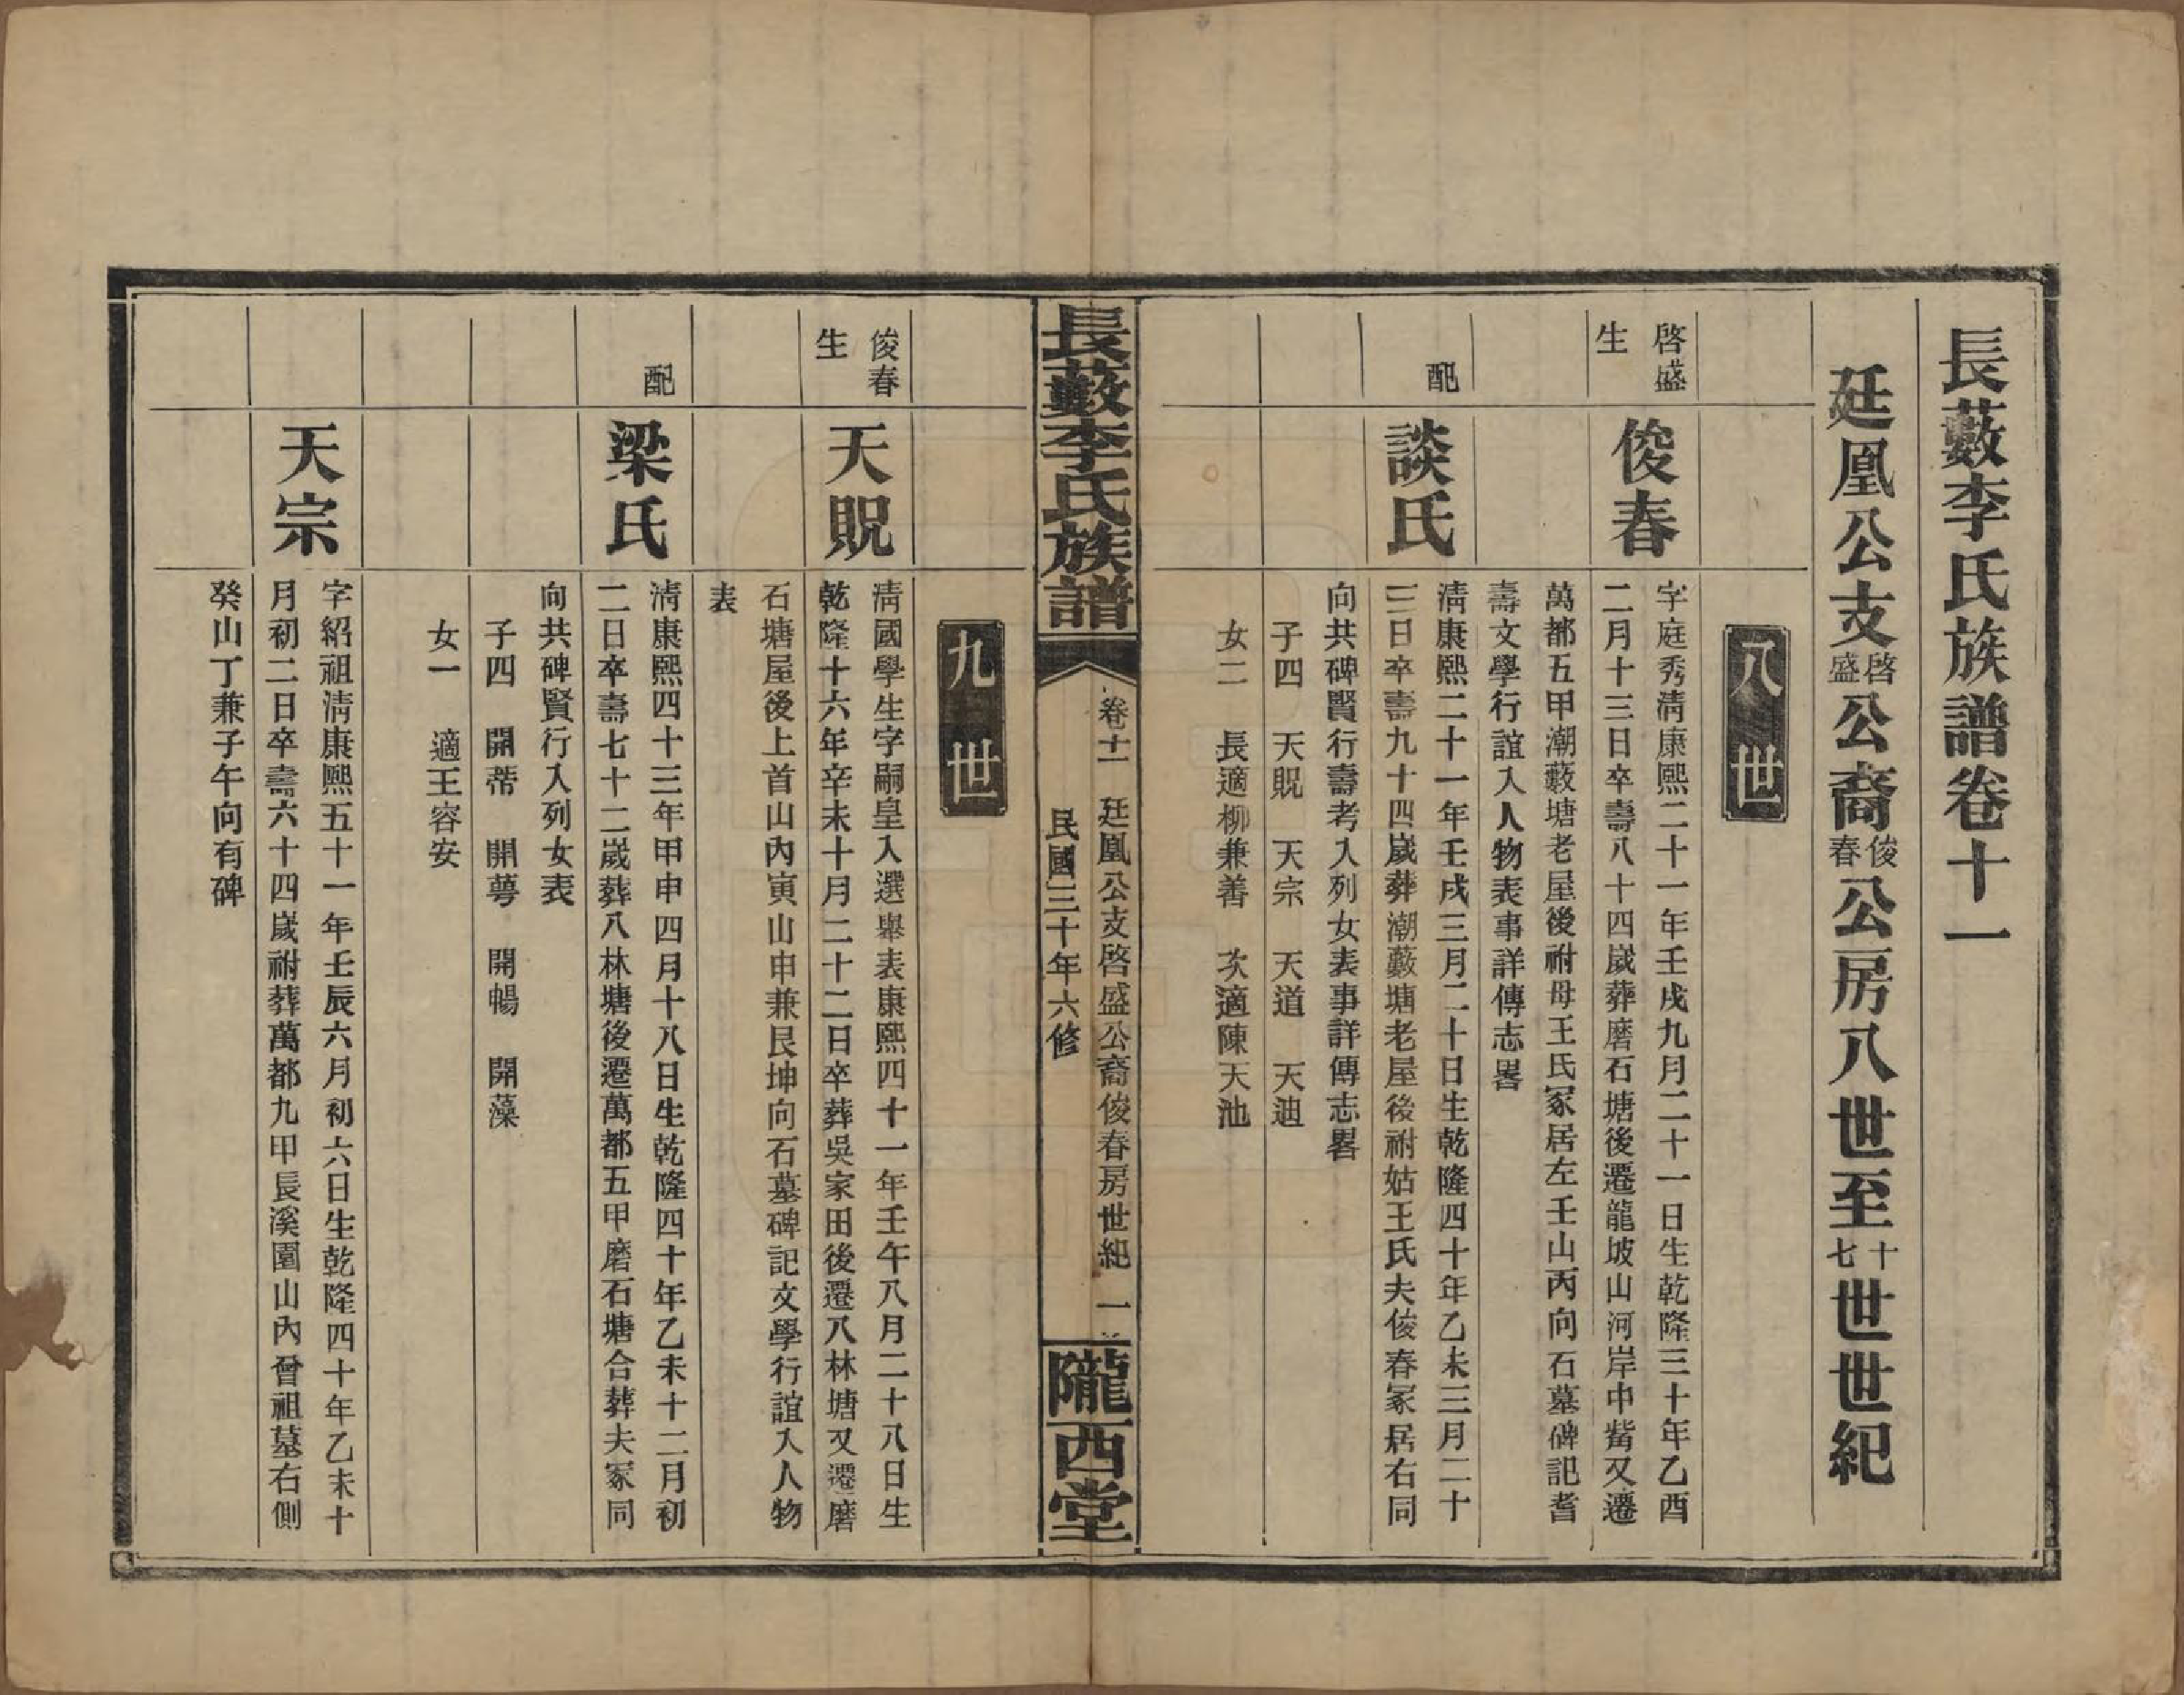 長藪李氏族譜卷十一
廷凰公支啓盛公裔俊春公房八世至十七世世紀
八世
啓盛生
俊春
字庭秀淸康熙二十一年壬戌九月二十一日生乾隆三十年乙酉
二月十三日卒壽八十四嵗葬磨石塘後遷龍坡山河岸中觜又遷
萬都五甲潮藪塘老屋後祔母王氏冢居左壬山丙向石墓碑記耆
壽文學行誼入人物表事詳傳志畧
配
談氏
淸康熙二十一年壬戌三月二十日生乾隆四十年乙未三月二十
三日卒壽九十四嵗葬潮藪塘老屋後祔姑王氏夫俊春冢居右同
向共碑賢行壽考入列女表事詳傳志畧
子四　天貺　天宗　天道　天迪
女二　長適柳兼善　次適陳天池
長藪李氏族譜
卷十一　廷凰公支啓盛公裔俊春房世紀　一
民國三十年六修
隴西堂
九世
俊春生
天貺
淸國學生字嗣皇入選舉表康熙四十一年壬午八月二十八日生
乾隆十六年辛未十月二十二日卒葬吳家田後遷八林塘又遷磨
石塘屋後上首山內寅山申兼艮坤向石墓碑記文學行誼入人物
表
配
梁氏
淸康熙四十三年甲申四月十八日生乾隆四十年乙未十二月初
二日卒壽七十二嵗葬八林塘後遷萬都五甲磨石塘合葬夫冢同
向共碑賢行入列女表
子四　開蒂　開萼　開暢　開藻
女一　適王容安
天宗
字紹祖淸康熙五十一年壬辰六月初六日生乾隆四十年乙未十
月初二日卒壽六十四嵗祔葬萬都九甲長溪園山內晉祖墓右側
癸山丁兼子午向有碑